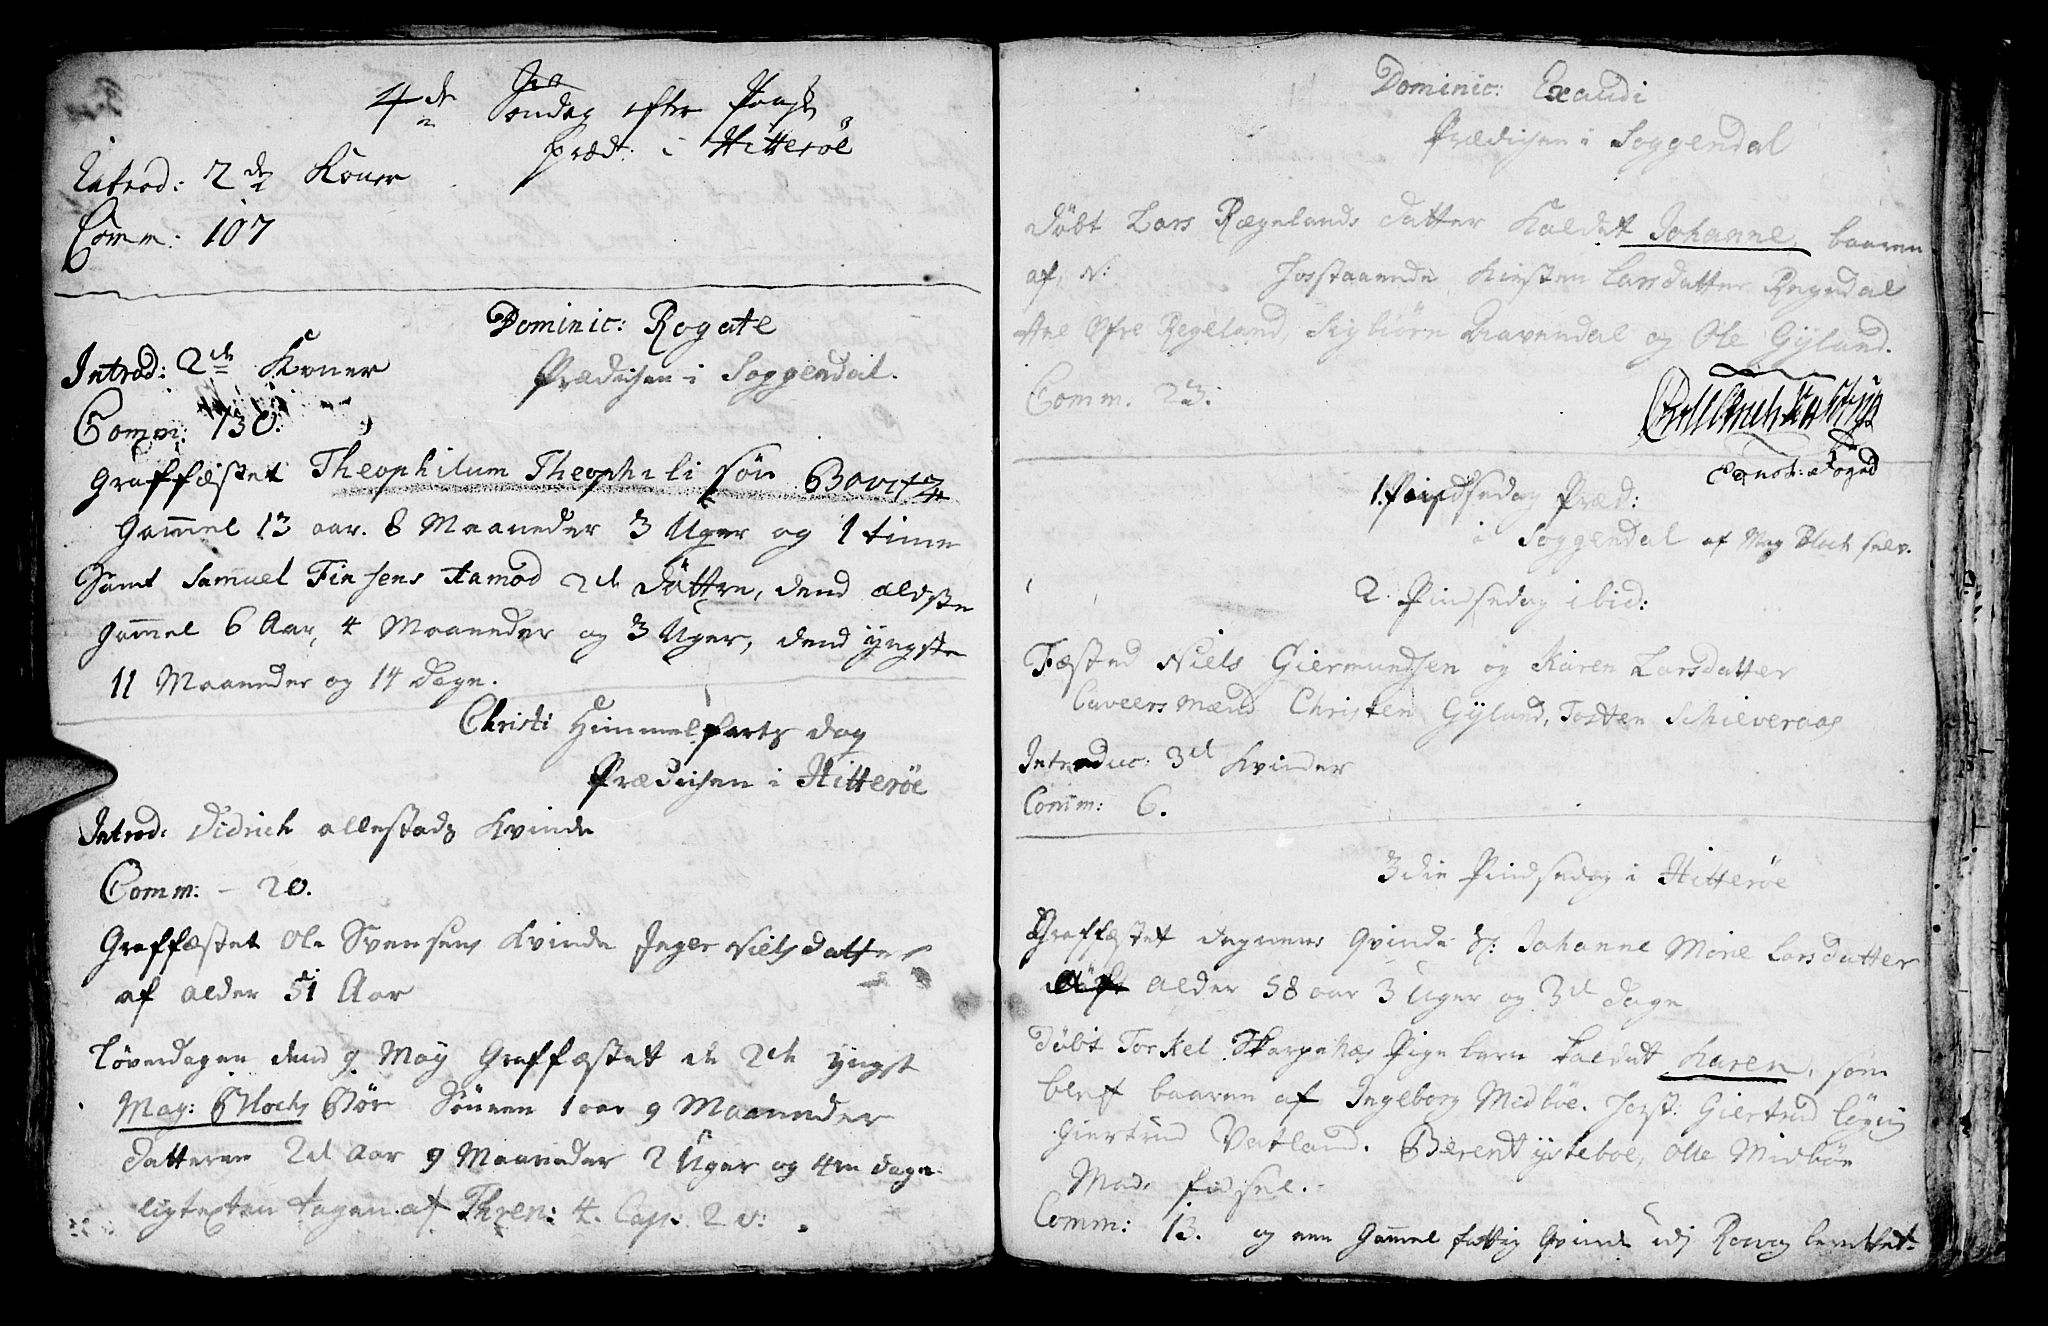 4de Søndag efter Paasche
Præd: i Hitterøe
Introd: 2de Koner
Comm: 107
Dominic: Rogate
Introd: 2de Koner
Prædichen i Soggendal.
Comm: 130.
Graffæstet Theophilum Theophili søn
Gam̄el 13 aar. 8 Maaneder 3 Uger og 1 time
Samt Samuel Finsens Aamod 2de Døttre, dend ældste
Gam̄el 6 Aar, 4 Maaneder og 3 Uger, dend yngste
11 Maaneder og 14 dage.
Christi Himmelfarts dag
Prædichen i Hitterøe
Introd: Didrich allestads Kvinde
Comm: - 20.
Graffæstet Ole Svensens Kvinde Inger Nielsdatter
af alder 51 Aar
Løverdagen dend 9 May Graffæstet de 2de yngst
Mag: Blochs Bør Sønnen 1 aar 9 Maaneder
Datteren 2de Aar 9 Maaneder 2 Uger og 4re dage
ligtexten tagen af Thren: 4. Cap: 2 v:
Dominic: Exaudi
Prædichen i Soggendal
Døbt Lars Rægelands datter Kaldet Johanne baaren
af N: Hosstaaende Kirsten Larsdatter Regedal
Ane Øfre Regeland, Sigbiørn Ravendal og Ole Gyland.
Comm. 23.
Const: Foged
1. Pindsedag Præd:
i Soggendal af Mag Bloch selv.
2. Pindsedag ibid:
Fæsted Niels Giermundsen og Karen Larsdatter
Caveers Mænd Christen Gyland, Tosten Schieveraas
Introduc: 3de Kvinder
Comm: 6.
3die Pindsedag i Hitterøe
Graffæstet degnens Qvinde Sl: Johanne Marie Larsdatter
af alder 58 aar 3 Uger og 3de dage
Døbt Torkel Skarpenæs Pige barn kaldet Karen, som
blef baaren af Ingeborg Midbøe. Hosst: Giertrud Løgin
Giertrud Vatland. Berent Ystebøe, Olle Midbøe
Mads
Comm: 13. og een Gam̄el fattig Qvinde udj berettet.